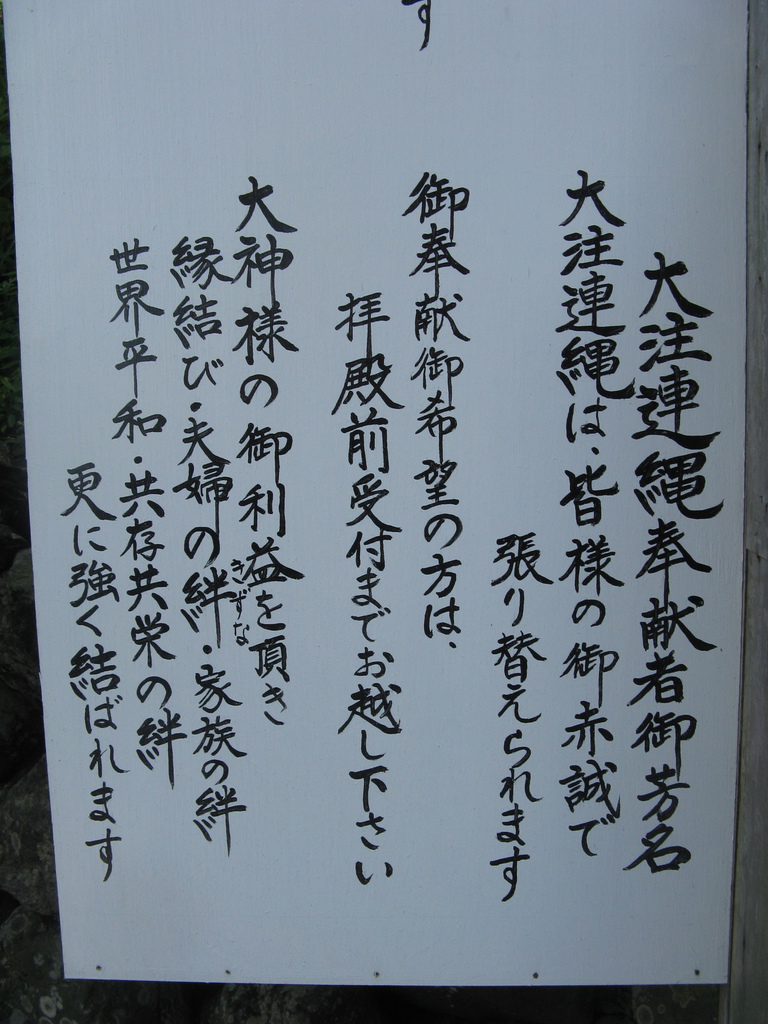 大注連縄奉献者御芳名
大注連縄は、皆様の御赤誠で
張り替えられます
御奉献御希望の方は、
拝殿前受付までお越し下さい
大神様の御利益を頂き
縁結び・夫婦の絆・家族の絆
きずな
世界平和・共存共栄の絆
更に強く結ばれます
す